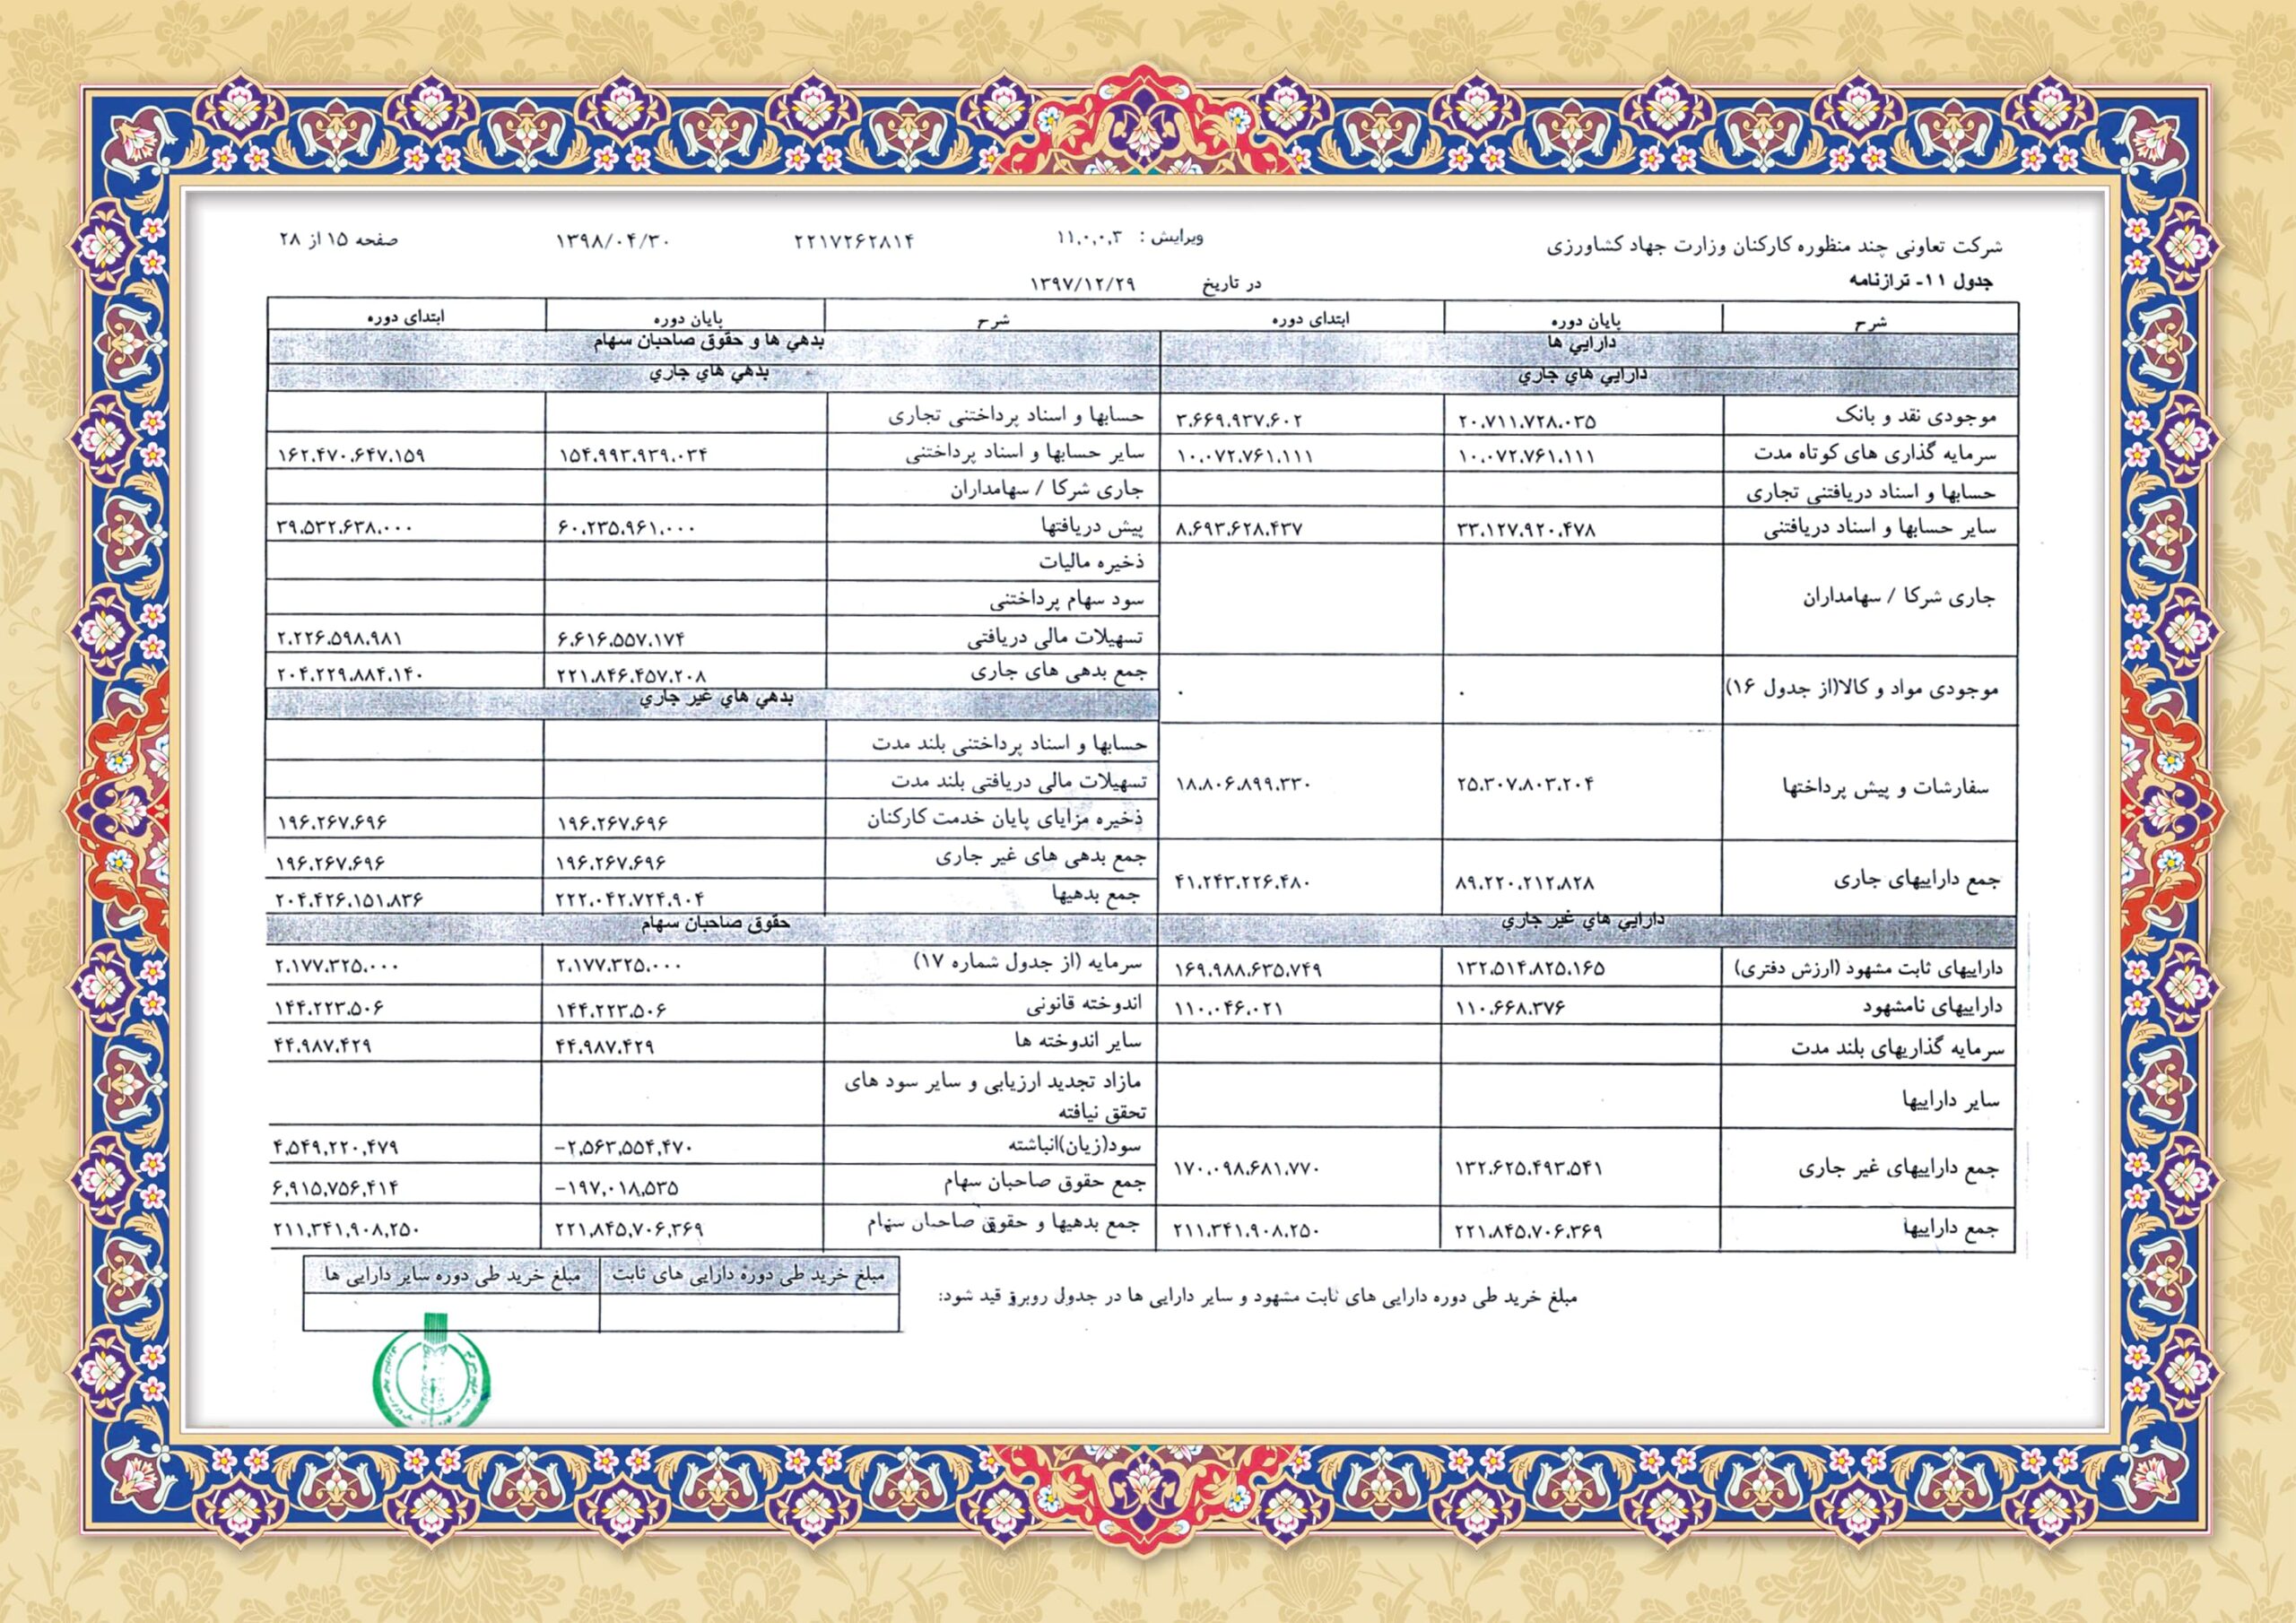 شرکت تعاونی چند منظوره کارکنان وزارت جهاد کشاورزی ویرایش : ۱۱,۰,۰,۳ ۲۲۱۷۲۶۲۸۱۴ ۱۳۹۸/۰۴/۳۰ صفحه ۱۵ از ۲۸
جدول ۱۱- ترازنامه در تاریخ ۱۳۹۷/۱۲/۲۹
شرح پایان دوره ابتدای دوره شرح پایان دوره ابتدای دوره
دارايي ها بدهي ها و حقوق صاحبان سهام
دارايي هاي جاري بدهي هاي جاري
موجودی نقد و بانک ۲۰,۷۱۱,۷۲۸,۰۳۵ ۳,۶۶۹,۹۳۷,۶۰۲ حسابها و اسناد پرداختنی تجاری
سرمایه گذاری های کوتاه مدت ۱۰,۰۷۲,۷۶۱,۱۱۱ ۱۰,۰۷۲,۷۶۱,۱۱۱ سایر حسابها و اسناد پرداختنی ۱۵۴,۹۹۳,۹۳۹,۰۳۴ ۱۶۲,۴۷۰,۶۴۷,۱۵۹
حسابها و اسناد دریافتنی تجاری جاری شرکا / سهامداران
سایر حسابها و اسناد دریافتنی ۳۳,۱۲۷,۹۲۰,۴۷۸ ۸,۶۹۳,۶۲۸,۴۳۷ پیش دریافتها ۶۰,۲۳۵,۹۶۱,۰۰۰ ۳۹,۵۳۲,۶۳۸,۰۰۰
ذخیره مالیات
جاری شرکا / سهامداران سود سهام پرداختنی
تسهیلات مالی دریافتی ۶,۶۱۶,۵۵۷,۱۷۴ ۲,۲۲۶,۵۹۸,۹۸۱
جمع بدهی های جاری ۲۲۱,۸۴۶,۴۵۷,۲۰۸ ۲۰۴,۲۲۹,۸۸۴,۱۴۰
موجودی مواد و کالا(از جدول ۱۶) ۰ ۰ بدهي هاي غير جاري
حسابها و اسناد پرداختنی بلند مدت
سفارشات و پیش پرداختها ۲۵,۳۰۷,۸۰۳,۲۰۴ ۱۸,۸۰۶,۸۹۹,۳۳۰ تسهیلات مالی دریافتی بلند مدت
ذخیره مزایای پایان خدمت کارکنان ۱۹۶,۲۶۷,۶۹۶ ۱۹۶,۲۶۷,۶۹۶
جمع داراییهای جاری ۸۹,۲۲۰,۲۱۲,۸۲۸ ۴۱,۲۴۳,۲۲۶,۴۸۰ جمع بدهی های غیر جاری ۱۹۶,۲۶۷,۶۹۶ ۱۹۶,۲۶۷,۶۹۶
جمع بدهیها ۲۲۲,۰۴۲,۷۲۴,۹۰۴ ۲۰۴,۴۲۶,۱۵۱,۸۳۶
دارايي هاي غير جاري حقوق صاحبان سهام
داراییهای ثابت مشهود (ارزش دفتری) ۱۳۲,۵۱۴,۸۲۵,۱۶۵ ۱۶۹,۹۸۸,۶۳۵,۷۴۹ سرمایه (از جدول شماره ۱۷) ۲,۱۷۷,۳۲۵,۰۰۰ ۲,۱۷۷,۳۲۵,۰۰۰
داراییهای نامشهود ۱۱۰,۶۶۸,۳۷۶ ۱۱۰,۰۴۶,۰۲۱ اندوخته قانونی ۱۴۴,۲۲۳,۵۰۶ ۱۴۴,۲۲۳,۵۰۶
سرمایه گذاریهای بلند مدت سایر اندوخته ها ۴۴,۹۸۷,۴۲۹ ۴۴,۹۸۷,۴۲۹
سایر داراییها مازاد تجدید ارزیابی و سایر سود های
تحقق نیافته
سود(زیان)انباشته -۲,۵۶۳,۵۵۴,۴۷۰ ۴,۵۴۹,۲۲۰,۴۷۹
جمع داراییهای غیر جاری ۱۳۲,۶۲۵,۴۹۳,۵۴۱ ۱۷۰,۰۹۸,۶۸۱,۷۷۰ جمع حقوق صاحبان سهام -۱۹۷,۰۱۸,۵۳۵ ۶,۹۱۵,۷۵۶,۴۱۴
جمع داراییها ۲۲۱,۸۴۵,۷۰۶,۳۶۹ ۲۱۱,۳۴۱,۹۰۸,۲۵۰ جمع بدهیها و حقوق صاحبان سهام ۲۲۱,۸۴۵,۷۰۶,۳۶۹ ۲۱۱,۳۴۱,۹۰۸,۲۵۰
مبلغ خرید طی دوره دارایی های ثابت مشهود و سایر دارایی ها در جدول روبرو قید شود:
مبلغ خرید طی دوره دارایی های ثابت مبلغ خرید طی دوره سایر دارایی ها